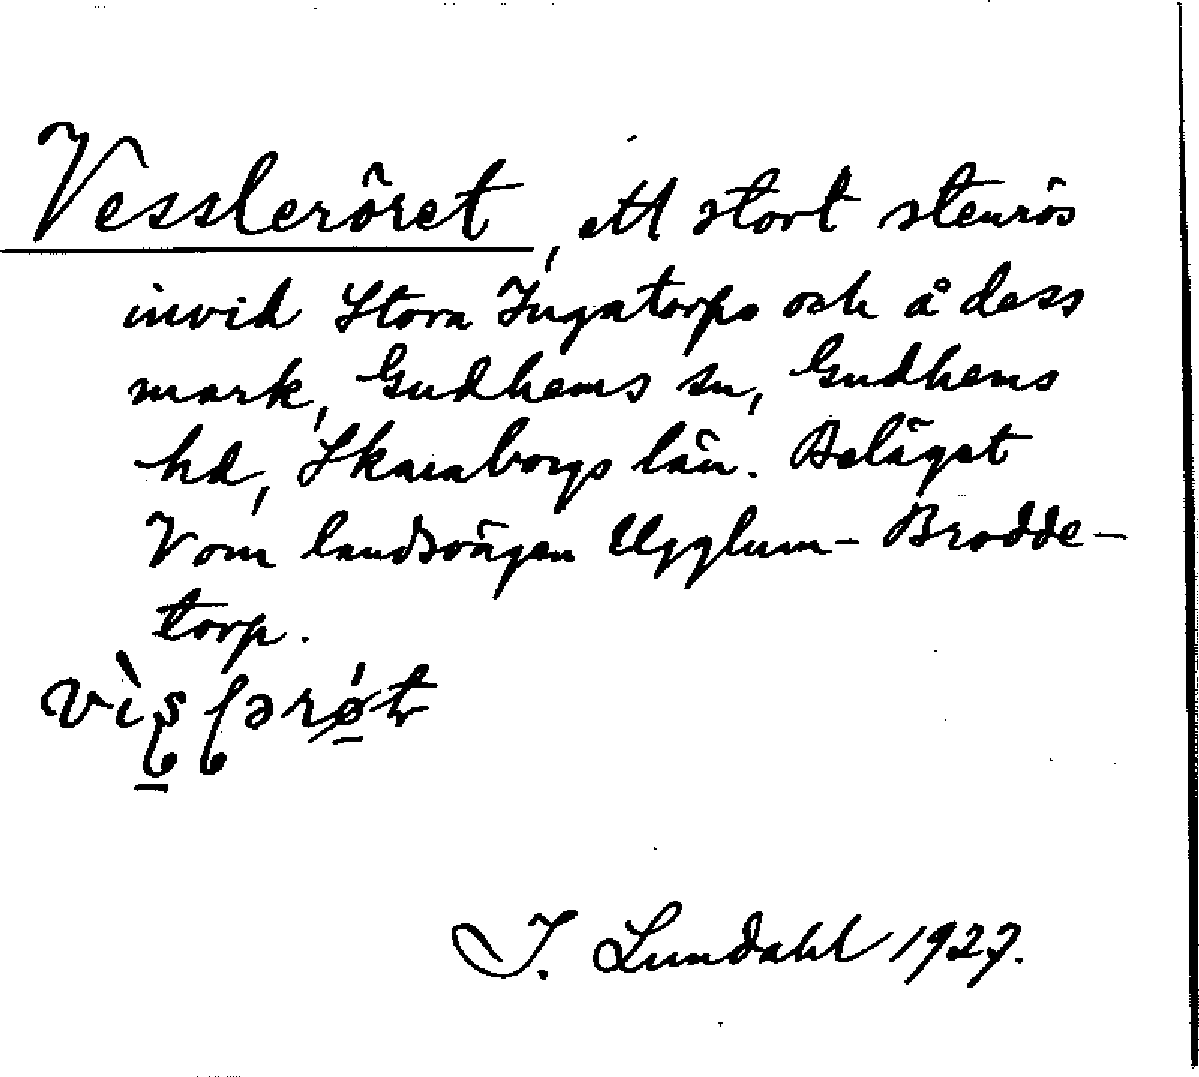 Vessleröret, ett stort stenrös
invid Stora Ingatorps och å dess
mark, Gudhems sn, Gudhems
hd, Skaraborgs län. Beläget
V om landsvägen Ugglum-Brodde-
torp.
J. Lundahl 1927.